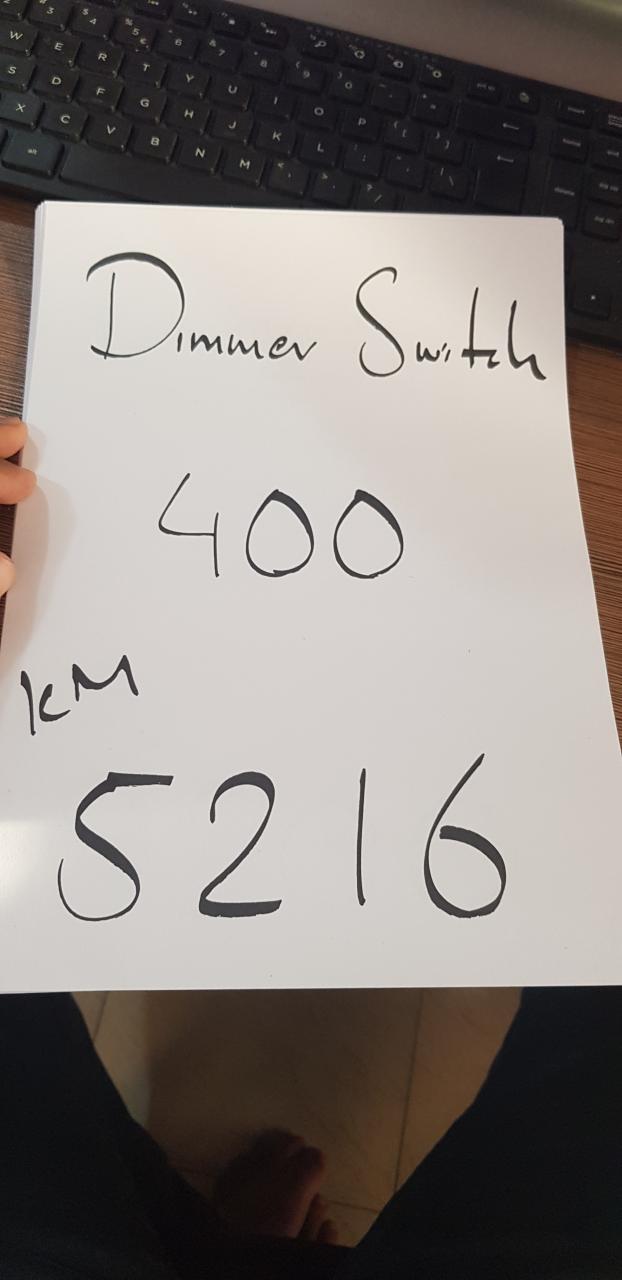 W E R T Y U I O P
S D F G H J K L
X C V B N M
alt
Dimmer Switch
400
KM
5216